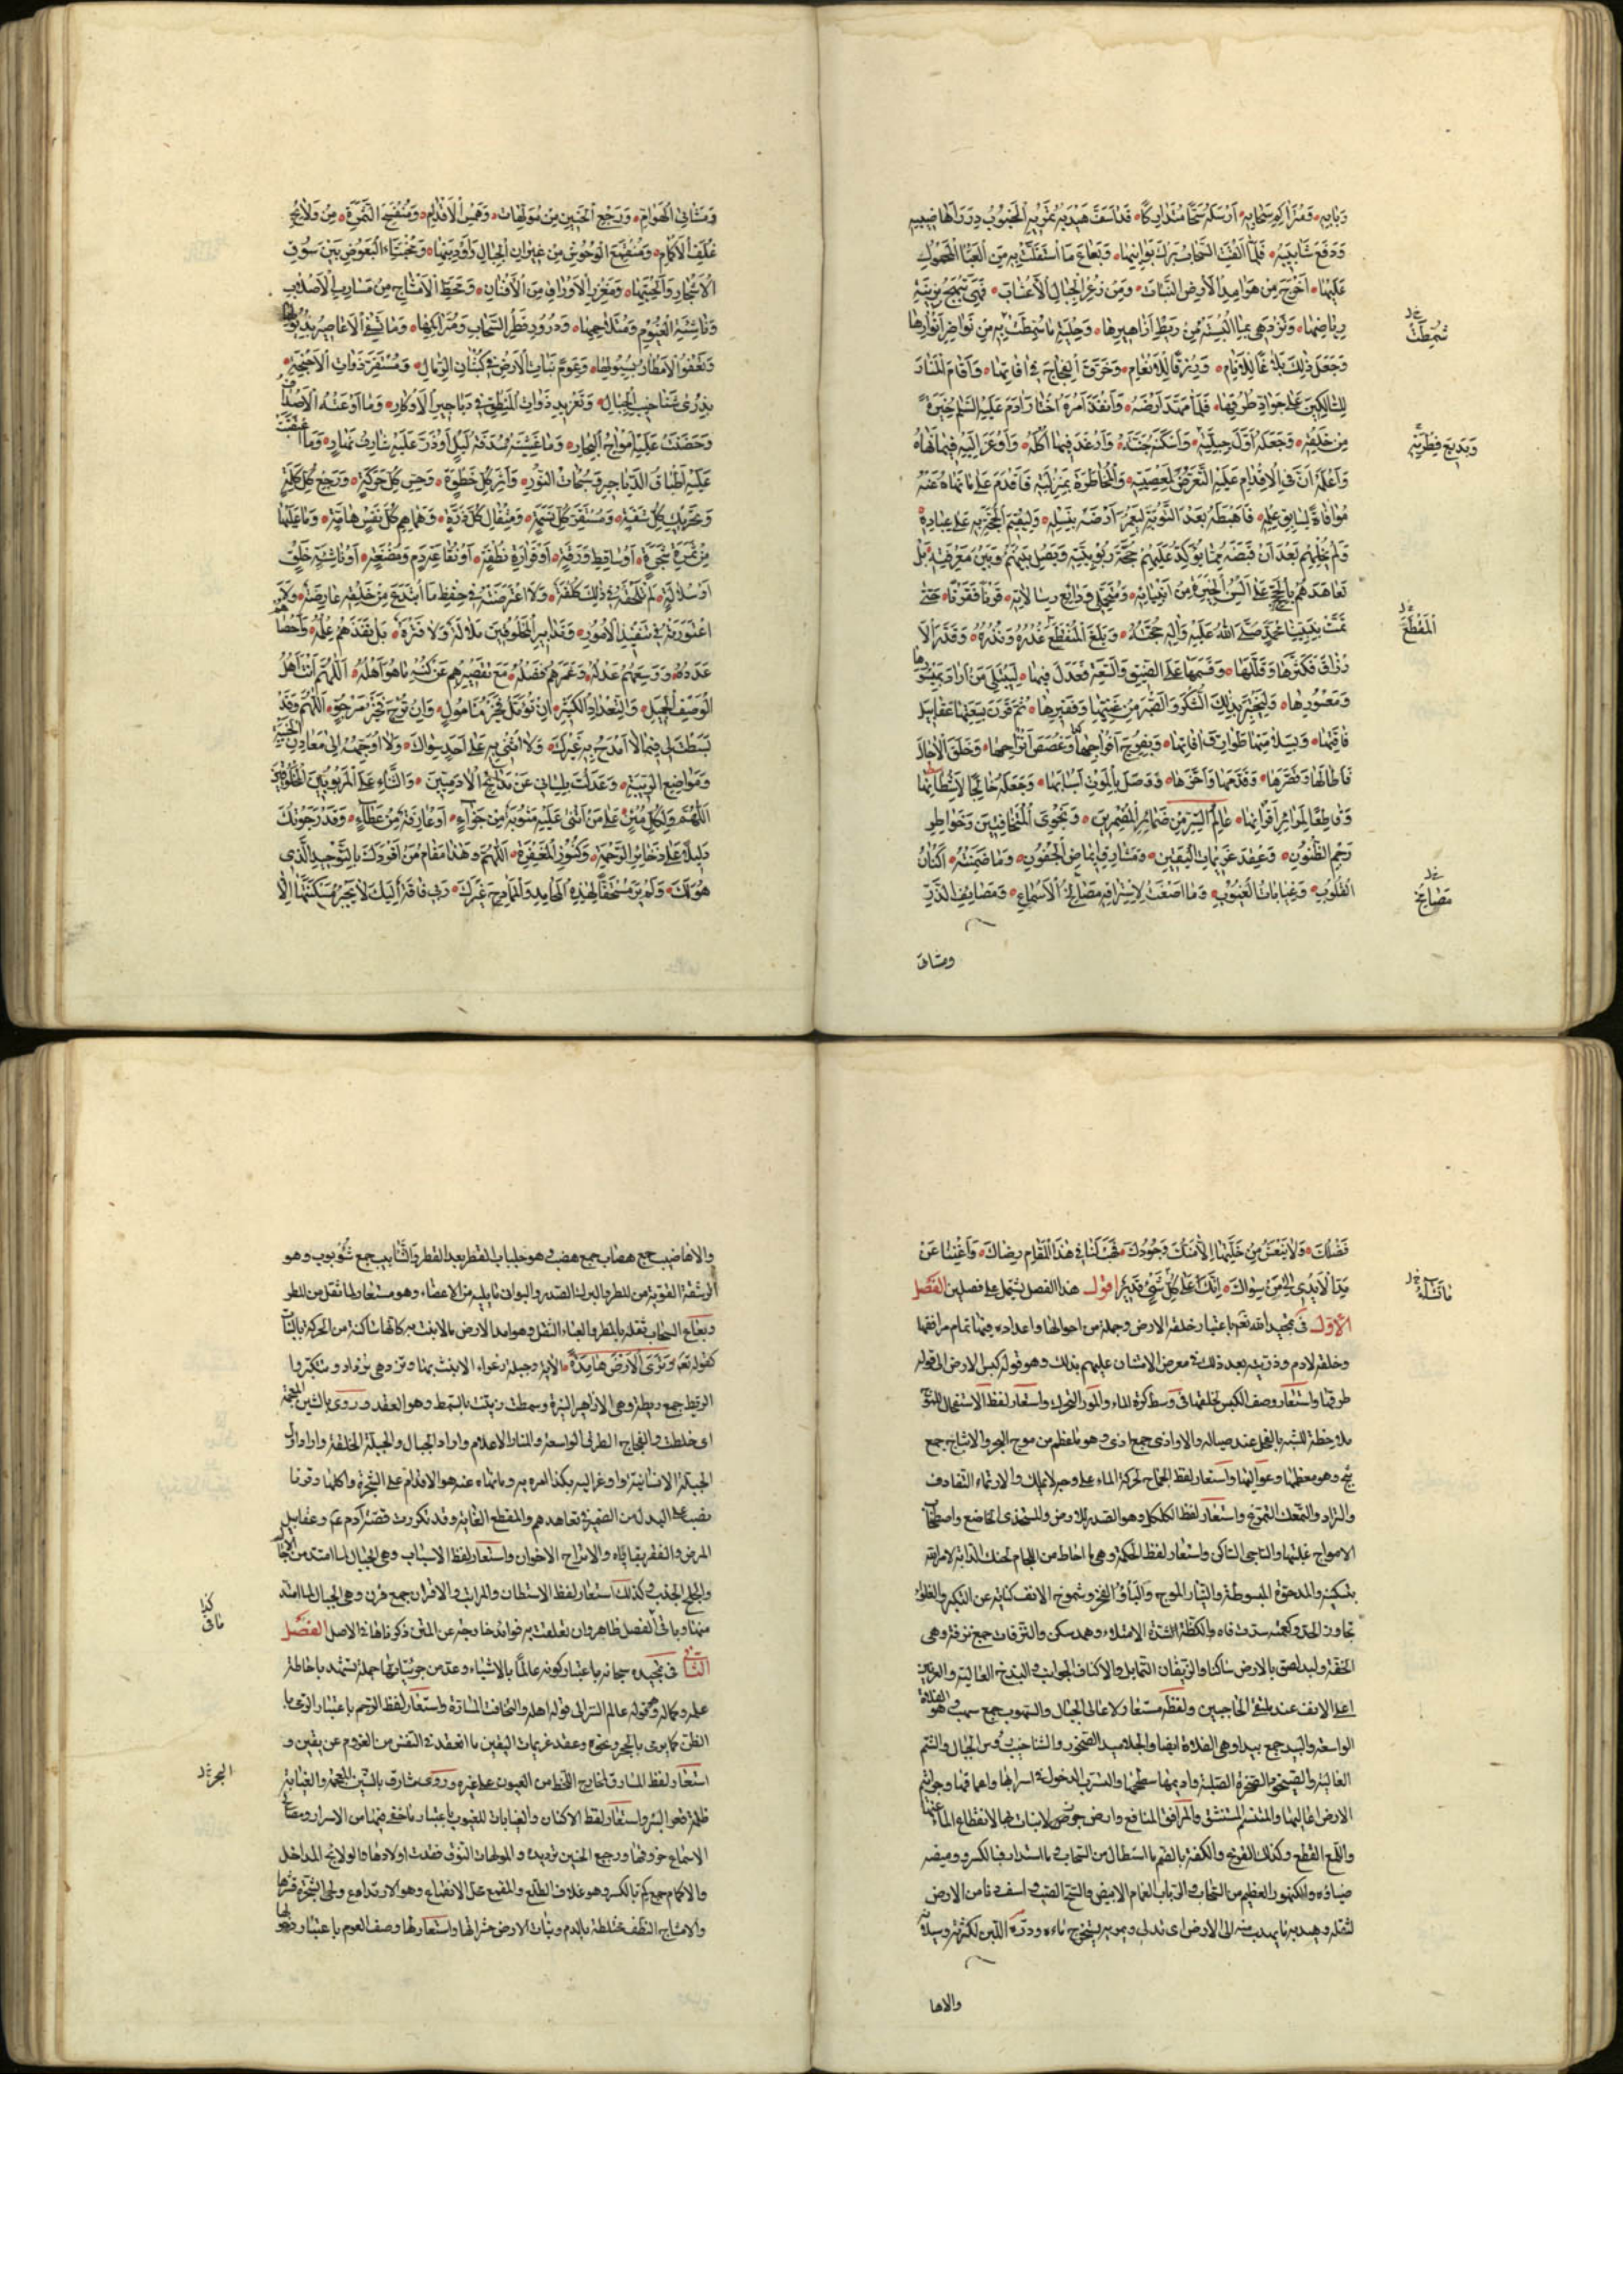 وَبَابِهِ وَمُتَرَاكِمِ سَحَابِهِ أَرْسَلَهُ سَحًّا مُتَدَارِكًا قَدْ أَسَفَّ هَيْدَبُهُ تَمْرِيهِ الْجَنُوبُ دِرَرَ أَهَاضِيبِهِ
وَدَفْعَ شَآبِيبِهِ فَلَمَّا أَلْقَتِ السَّحَابُ بَرْكَ بَوَانِيهَا وَبَعَاعَ مَا اسْتَقَلَّتْ بِهِ مِنَ الْعِبْءِ الْمَحْمُولِ
عَلَيْهَا أَخْرَجَ مِنْ هَوَامِدِ الْأَرْضِ النَّبَاتَ وَمِنْ زُعْرِ الْجِبَالِ الْأَعْشَابَ فَهِيَ تَبْهَجُ بِزِينَةِ
رِيَاضِهَا وَتَزْدَهِي بِمَا أُلْبِسَتْهُ مِنْ رَيْطِ أَزَاهِيرِهَا وَحِلْيَةِ مَا سُمِطَتْ بِهِ مِنْ نَوَاضِرِ أَنْوَارِهَا
شُمِطَتْ
وَجَعَلَ ذَلِكَ بَلَاغًا لِلْأَنَامِ وَرِزْقًا لِلْأَنْعَامِ وَخَرَقَ الْفِجَاجَ فِي آفَاقِهَا وَأَقَامَ الْمَنَارَ
لِلسَّالِكِينَ عَلَى جَوَادِّ طُرُقِهَا فَلَمَّا مَهَّدَ أَرْضَهُ وَأَنْفَذَ أَمْرَهُ اخْتَارَ آدَمَ عَلَيْهِ السَّلَامُ خِيَرَةً
مِنْ خَلْقِهِ وَجَعَلَهُ أَوَّلَ جِبِلَّتِهِ وَأَسْكَنَهُ جَنَّتَهُ وَأَرْغَدَ فِيهَا أُكُلَهُ وَأَوْعَزَ إِلَيْهِ فِيمَا نَهَاهُ
وَبَدِيعَ فِطْرَتِهِ
وَأَعْلَمَهُ أَنَّ فِي الْإِقْدَامِ عَلَيْهِ التَّعَرُّضَ لِمَعْصِيَتِهِ وَالْمُخَاطَرَةَ بِمَنْزِلَتِهِ فَأَقْدَمَ عَلَى مَا نَهَاهُ عَنْهُ
مُوَافَاةً لِسَابِقِ عِلْمِهِ فَأَهْبَطَهُ بَعْدَ التَّوْبَةِ لِيَعْمُرَ أَرْضَهُ بِنَسْلِهِ وَلِيُقِيمَ الْحُجَّةَ بِهِ عَلَى عِبَادِهِ
وَلَمْ يُخْلِهِمْ بَعْدَ أَنْ قَبَضَهُ مِمَّا يُؤَكِّدُ عَلَيْهِمْ حُجَّةَ رُبُوبِيَّتِهِ وَيَصِلُ بَيْنَهُمْ وَبَيْنَ مَعْرِفَتِهِ بَلْ
تَعَاهَدَهُمْ بِالْحُجَجِ عَلَى أَلْسُنِ الْخِيَرَةِ مِنْ أَنْبِيَائِهِ وَمُتَحَمِّلِي وَدَائِعِ رِسَالَاتِهِ قَرْنًا فَقَرْنًا حَتَّى
تَمَّتْ بِنَبِيِّنَا مُحَمَّدٍ صَلَّى اللهُ عَلَيْهِ وَآلِهِ حُجَّتُهُ وَبَلَغَ الْمَقْطَعَ عُذُرُهُ وَنُذُرُهُ وَقَدَّرَ الْأَ
الْمَقْطَعَ
رْزَاقَ فَكَثَّرَهَا وَقَلَّلَهَا وَقَسَّمَهَا عَلَى الضِّيقِ وَالسَّعَةِ فَعَدَلَ فِيهَا لِيَبْتَلِيَ مَنْ أَرَادَ بِمَيْسُورِهَا
وَمَعْسُورِهَا وَلِيَخْتَبِرَ بِذَلِكَ الشُّكْرَ وَالصَّبْرَ مِنْ غَنِيِّهَا وَفَقِيرِهَا ثُمَّ قَرَنَ بِسَعَتِهَا عَقَابِيلَ
فَاقَتِهَا وَبِسَلَامَتِهَا طَوَارِقَ آفَاتِهَا وَبِفُرَجِ أَفْرَاحِهَا غُصَصَ أَتْرَاحِهَا وَخَلَقَ الْآجَالَ
فَأَطَالَهَا وَقَصَّرَهَا وَقَدَّمَهَا وَأَخَّرَهَا وَوَصَلَ بِالْمَوْتِ أَسْبَابَهَا وَجَعَلَهُ خَالِجًا لِأَشْطَانِهَا
وَقَاطِعًا لِمَرَائِرِ أَقْرَانِهَا عَالِمُ السِّرِّ مِنْ ضَمَائِرِ الْمُضْمِرِينَ وَنَجْوَى الْمُتَخَافِتِينَ وَخَوَاطِرِ
رَجْمِ الظُّنُونِ وَعُقَدِ عَزِيمَاتِ الْيَقِينِ وَمَسَارِقِ إِيمَاضِ الْجُفُونِ وَمَا ضَمِنَتْهُ أَكْنَانُ
الْقُلُوبِ وَغَيَابَاتُ الْغُيُوبِ وَمَا أَصْغَتْ لِاسْتِرَاقِهِ مَصَائِخُ الْأَسْمَاعِ وَمَصَايِفُ الذَّرِّ
مَصَايِخُ
ومشاتى
وَمَشَاتِي الْهَوَامِّ وَرَجْعِ الْحَنِينِ مِنَ الْمُولَهَاتِ وَهَمْسِ الْأَقْدَامِ وَمُنْفَسَحِ الثَّمَرَةِ مِنْ وَلَائِجِ
غُلُفِ الْأَكْمَامِ وَمُنْقَمَعِ الْوُحُوشِ مِنْ غِيرَانِ الْجِبَالِ وَأَوْدِيَتِهَا وَمُخْتَبَأِ الْبَعُوضِ بَيْنَ سُوقِ
الْأَشْجَارِ وَأَلْحِيَتِهَا وَمَغْرِزِ الْأَوْرَاقِ مِنَ الْأَفْنَانِ وَمَحَطِّ الْأَمْشَاجِ مِنْ مَسَارِبِ الْأَصْلَابِ
وَنَاشِئَةِ الْغُيُومِ وَمُتَلَاحِمِهَا وَدُرُورِ قَطْرِ السَّحَابِ وَمُتَرَاكِمِهَا وَمَا تَسْفِي الْأَعَاصِيرُ بِذُيُولِهَا
وَتَعْفُو الْأَمْطَارُ بِسُيُولِهَا وَعَوْمِ نَبَاتِ الْأَرْضِ فِي كُثْبَانِ الرِّمَالِ وَمُسْتَقَرِّ ذَوَاتِ الْأَجْنِحَةِ
بِذُرَى شَنَاخِيبِ الْجِبَالِ وَتَغْرِيدِ ذَوَاتِ الْمَنْطِقِ فِي دَيَاجِيرِ الْأَوْكَارِ وَمَا أَوْعَتْهُ الْأَصْدَافُ
وَحَضَنَتْ عَلَيْهِ أَمْوَاجُ الْبِحَارِ وَمَا غَشِيَتْهُ سُدْفَةُ لَيْلٍ أَوْ ذَرَّ عَلَيْهِ شَارِقُ نَهَارٍ وَمَا اعْتَقَبَتْ
عَلَيْهِ أَطْبَاقُ الدَّيَاجِيرِ وَسُبُحَاتُ النُّورِ وَأَثَرِ كُلِّ خَطْوَةٍ وَحِسِّ كُلِّ حَرَكَةٍ وَرَجْعِ كُلِّ كَلِمَةٍ
وَتَحْرِيكِ كُلِّ شَفَةٍ وَمُسْتَقَرِّ كُلِّ نَسَمَةٍ وَمِثْقَالِ كُلِّ ذَرَّةٍ وَهَمَاهِمِ كُلِّ نَفْسٍ هَامَّةٍ وَمَا عَلَيْهَا
مِنْ ثَمَرَةِ شَجَرَةٍ أَوْ سَاقِطِ وَرَقَةٍ أَوْ قَرَارَةِ نُطْفَةٍ أَوْ نُقَاعَةِ دَمٍ وَمُضْغَةٍ أَوْ نَاشِئَةِ خَلْقٍ
أَوْ سُلَالَةٍ لَمْ تَلْحَقْهُ فِي ذَلِكَ كُلْفَةٌ وَلَا اعْتَرَضَتْهُ فِي حِفْظِ مَا ابْتَدَعَ مِنْ خَلْقِهِ عَارِضَةٌ وَلَا
اعْتَوَرَتْهُ فِي تَنْفِيذِ الْأُمُورِ وَتَدَابِيرِ الْمَخْلُوقِينَ مَلَالَةٌ وَلَا فَتْرَةٌ بَلْ نَفَذَهُمْ عِلْمُهُ وَأَحْصَاهُمْ
عَدَدُهُ وَوَسِعَهُمْ عَدْلُهُ وَغَمَرَهُمْ فَضْلُهُ مَعَ تَقْصِيرِهِمْ عَنْ كُنْهِ مَا هُوَ أَهْلُهُ اللَّهُمَّ أَنْتَ أَهْلُ
الْوَصْفِ الْجَمِيلِ وَالتَّعْدَادِ الْكَثِيرِ إِنْ تُؤَمَّلْ فَخَيْرُ مَأْمُولٍ وَإِنْ تُرْجَ فَخَيْرُ مَرْجُوٍّ اللَّهُمَّ وَقَدْ
بَسَطْتَ لِي فِيمَا لَا أَمْدَحُ بِهِ غَيْرَكَ وَلَا أُثْنِي بِهِ عَلَى أَحَدٍ سِوَاكَ وَلَا أُوَجِّهُهُ إِلَى مَعَادِنِ الْخَيْبَةِ
وَمَوَاضِعِ الرِّيبَةِ وَعَدَلْتَ بِلِسَانِي عَنْ مَدَائِحِ الْآدَمِيِّينَ وَالثَّنَاءِ عَلَى الْمَرْبُوبِينَ الْمَخْلُوقِينَ
اللَّهُمَّ وَلِكُلِّ مُثْنٍ عَلَى مَنْ أَثْنَى عَلَيْهِ مَثُوبَةٌ مِنْ جَزَاءٍ أَوْ عَارِفَةٌ مِنْ عَطَاءٍ وَقَدْ رَجَوْتُكَ
دَلِيلًا عَلَى ذَخَائِرِ الرَّحْمَةِ وَكُنُوزِ الْمَغْفِرَةِ اللَّهُمَّ وَهَذَا مَقَامُ مَنْ أَفْرَدَكَ بِالتَّوْحِيدِ الَّذِي
هُوَ لَكَ وَلَمْ يَرَ مُسْتَحِقًّا لِهَذِهِ الْمَحَامِدِ وَالْمَمَادِحِ غَيْرَكَ وَبِي فَاقَةٌ إِلَيْكَ لَا يَجْبُرُ مَسْكَنَتَهَا إِلَّا
فَضْلُكَ وَلَا يَنْعَشُ مِنْ خَلَّتِهَا إِلَّا مَنُّكَ وَجُودُكَ فَهَبْ لَنَا فِي هَذَا الْمَقَامِ رِضَاكَ وَأَغْنِنَا عَنْ
مَدِّ الْأَيْدِي إِلَى مَنْ سِوَاكَ إِنَّكَ عَلَى كُلِّ شَيْءٍ قَدِيرٌ اقول هذا الفصل يشتمل على فصلين الفصل
الاول فى تمجيد الله تعالى باعتبار خلقه الارض وجملة من احوالها واعداده فيها تمام مرافقها
وخلقه لادم وذريته بعد ذلك فى معرض الامتنان عليهم بذلك وهو قوله كبس الارض الى قوله
طرقها واستعار وصف الكبس لخلقها فى وسط كرة الماء والمور التحرك واستعار لفظ الاستفحال للموج
ملاحظة للشبه بالفحل عند صياله والاواذى جمع اذى وهو ما عظم من موج البحر والاثباج جمع
ثبج وهو معظمها وعواليها واستعار لفظ الجماح لحركة الماء على وجه لا يملك والارتماء التقاذف
والتراد والتمعك التمرغ واستعار لفظ الكلكل وهو الصدر للارض والمستخذى الخاضع واصطخاب
الامواج غلبتها والساجى الساكن واستعار لفظ الحكمة وهى ما احاط من اللجام بحنك الدابة
والمدحوة المبسوطة والتيار الموج والبأو الفخر وشموخ الانف كناية عن التكبر والغلواء
تجاوز الحد وكعمته سددت فاه والكظة شدة الامتلاء وهمد سكن والنزقات جمع نزقة وهى
الخفة ولبد لصق بالارض ساكنا والزيفان التمايل والاكناف الجوانب والبذخ العالية والعرنين
اعلى الانف عند ملتقى الحاجبين ولفظه مستعار لاعالى الجبال والسهوب جمع سهب وهو الفلاة
الواسعة والبيد جمع بيداء وهى الفلاة ايضا والجلاميد الصخور والشناخيب رؤس الجبال والشم
العالية والصيخود الصخرة الصلبة واديمها سطحها والتسرب الدخول
والمتنسم المستنشق والمرافق المنافع وارض جرز لا نبات بها لانقطاع الماء عنها
واللمع القطع وكذلك القزع والكفة بالضم ما استطال من السحاب وما استدار فبالكسر ووميضه
ضياؤه والكنهور العظيم من السحاب والرباب الغمام الابيض والسح الصب واسف دنا من الارض
لثقله وهيدبه ما يهدب منه الى الارض اى تدلى
ما تسئله
والاها
والاهاضيب جمع هضاب جمع هضب وهو جلبات القطر بعد القطر والشآبيب جمع شؤبوب وهو
الرشقة القوية من المطر والبرك الصدر والبوانى ما يليه من الاعضاء وهو مستعار لما ثقل من المطر
وبعاع السحاب ثقله بالمطر والعبء الثقل وهوامد الارض ما لا نبت به
كقوله تعالى وترى الارض هامدة الاية وجبلة زعراء لا نبت بها وتزدهى تزداد وتتكبر
الريط جمع ريطة وهى الازاهير النيرة وسمطت زينت بالسمط وهو العقد وروى بالشين المعجمة
اى خلطت والفجاج الطرق الواسعة والمنار الاعلام والجبلة الخلقة
وما نهاه عنه هو الاقدام على الشجرة واكلها
تعاهدهم والمقطع الغاية وقد تكررت قصة آدم ع وعقابيل
المرض والفقر بقاياه والاتراح الاحزان واستعار لفظ الاسباب
والخلج الجذب وكذلك استعار لفظ الاشطان والمراير والاقران جمع قرن وهى الحبال
منها وباقى الفصل ظاهر وان تعلقت به فوائد خارجة عن المتن ذكرناها فى الاصل الفصل
الثانى فى تمجيده سبحانه باعتبار كونه عالما بالاشياء وعد من جزئياتها جملة تشهد باحاطة
علمه وكماله وهو قوله عالم السر الى قوله اهله والتخافت المسارة واستعار لفظ الرجم باعتبار الرمى بها
الظن كما يرمى بالحجر ونحوه وعقد عزيمات اليقين ما انعقد فى النفس من العزوم عن يقين و
استعار لفظ المسارق لمخارج اللحظ من العيون على غيره وروى مشارق بالشين المعجمة والغيابة
ظلمة قعر البئر واستعار لفظ الاكنان والغيابات للغيوب باعتبار ما خفى فيها من الاسرار ومصائخ
الاسماع خروقها ورجيع الحنين ترديده والمولهات النوق فقدت اولادها والولائج المداخل
والاكمام جمع كم بالكسر وهو غلاف الطلع والمنقمع محل الانقماع وهو الارتداع ولحى الشجرة قشرها
والامشاج النطف مختلطة بالدم ونبات الارض حشراتها واستعار لها وصف العوم باعتبار دخولها